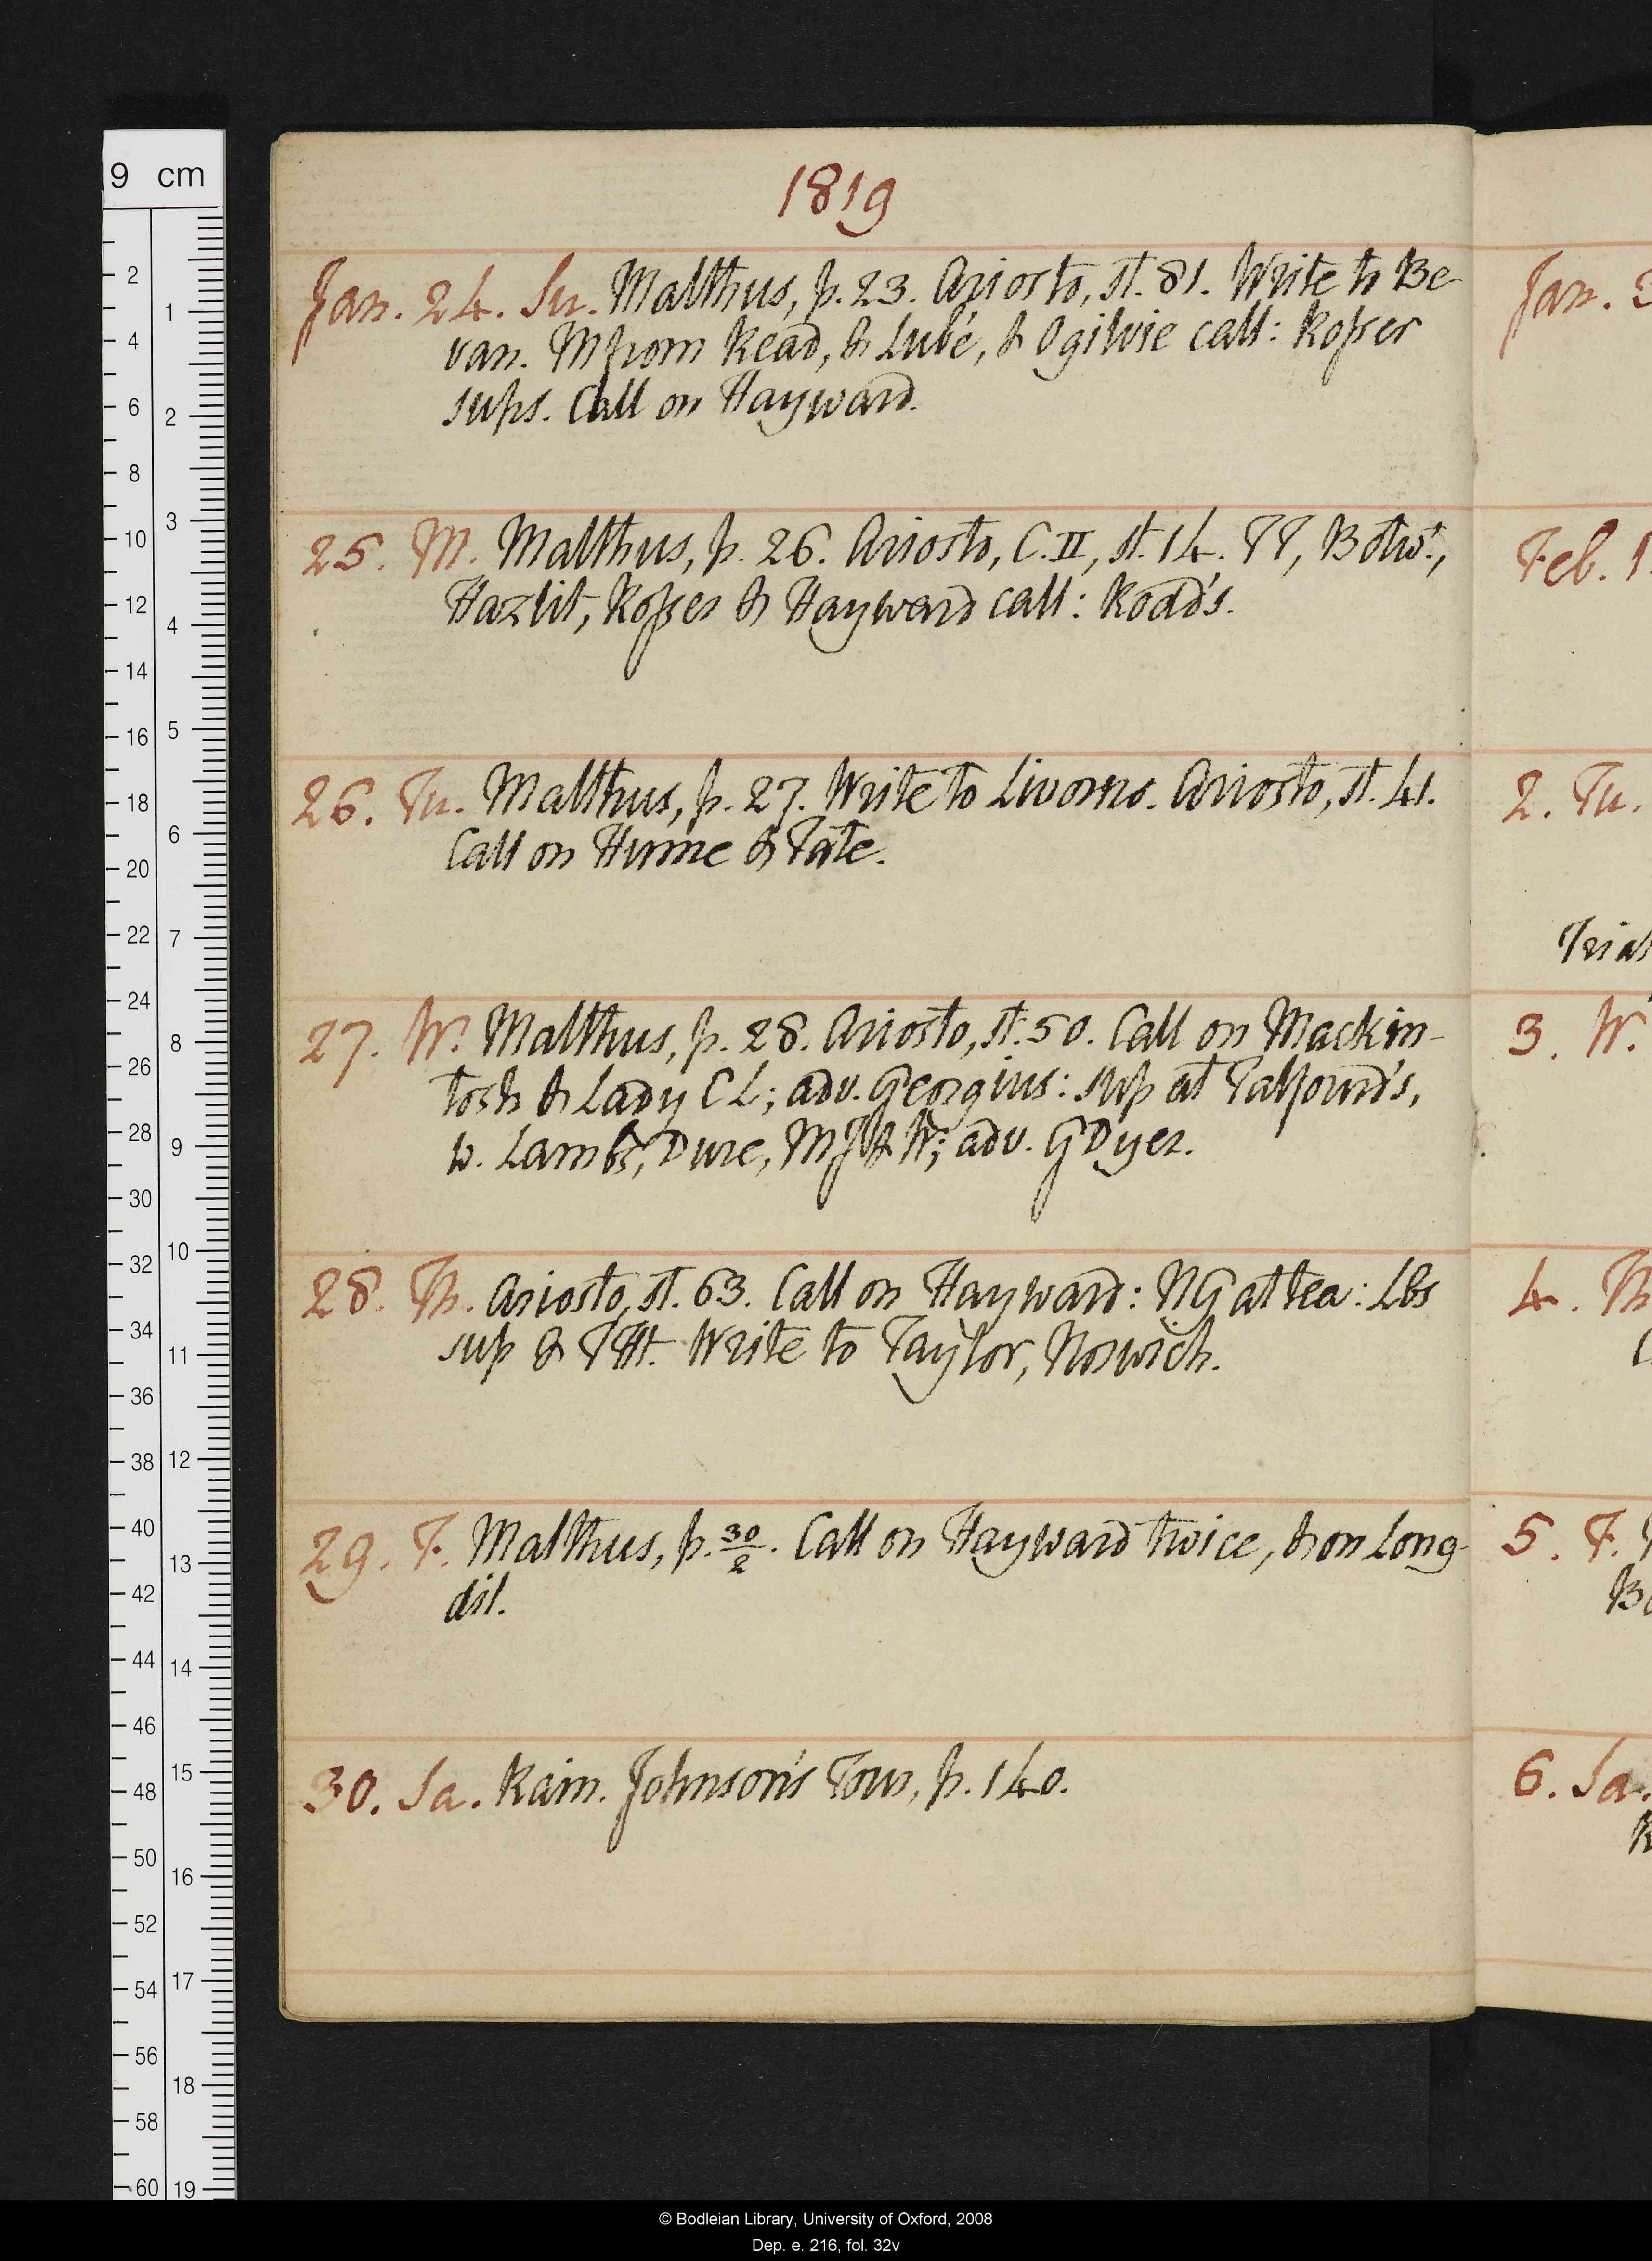 1819
Jan. 24. Su. Malthus, p. 23. Ariosto, st. 81. Write to Be-
van. M from Read, & Lubé, & Ogilvie call: Rosser
sups. Call on Hayward.
25. M. Malthus, p. 26. Ariosto, C. II, st. 14. TT, Botwt.,
Hazlit, Rosser & Hayward call: Road's.
26. Tu. Malthus, p. 27. Write to Livorno. Ariosto, st. 41.
Call on Hume & Tate.
27. W. Malthus, p. 28. Ariosto, st. 50. Call on Mackin-
tosh & Lady CL; adv. Georgius: sup at Talfourd's,
w. Lambs, Dure, MJ & W; adv. G Dyer.
28. Th. Ariosto, st. 63. Call on Hayward: NG at tea: Lbs
sup & THt. Write to Taylor, Norwich.
29. F. Malthus, p. 30/2. Call on Hayward twice, & on Long-
dil.
30. Sa. Rain. Johnson's Tour, p. 140.
Jan. 3
Feb. 1.
2. Tu.
Trial
3. W.
4. Th
5. F.
6. Sa.
9 cm
2 4 6 8 10 12 14 16 18 20 22 24 26 28 30 32 34 36 38 40 42 44 46 48 50 52 54 56 58 60
1 2 3 4 5 6 7 8 9 10 11 12 13 14 15 16 17 18 19
© Bodleian Library, University of Oxford, 2008
Dep. e. 216, fol. 32v